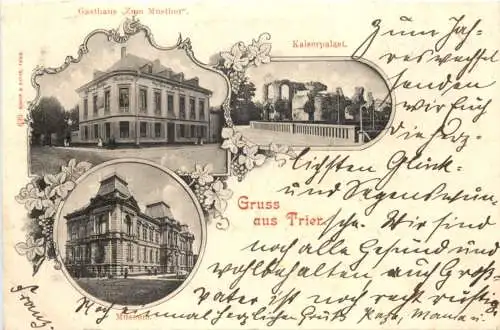 Gasthaus "Zum Musthor".
Kaiserpalast.
Gruss
aus Trier.
Museum.
Zum Jah-
reswechsel
senden
wir Euch
die herz-
lichsten Glück-
und Segenswün-
sche. Wir sind
noch alle Gesund und
wohlbehalten auch Groß-
vater ist noch recht rüstig
Noch einmal herzliche Gruß Mama